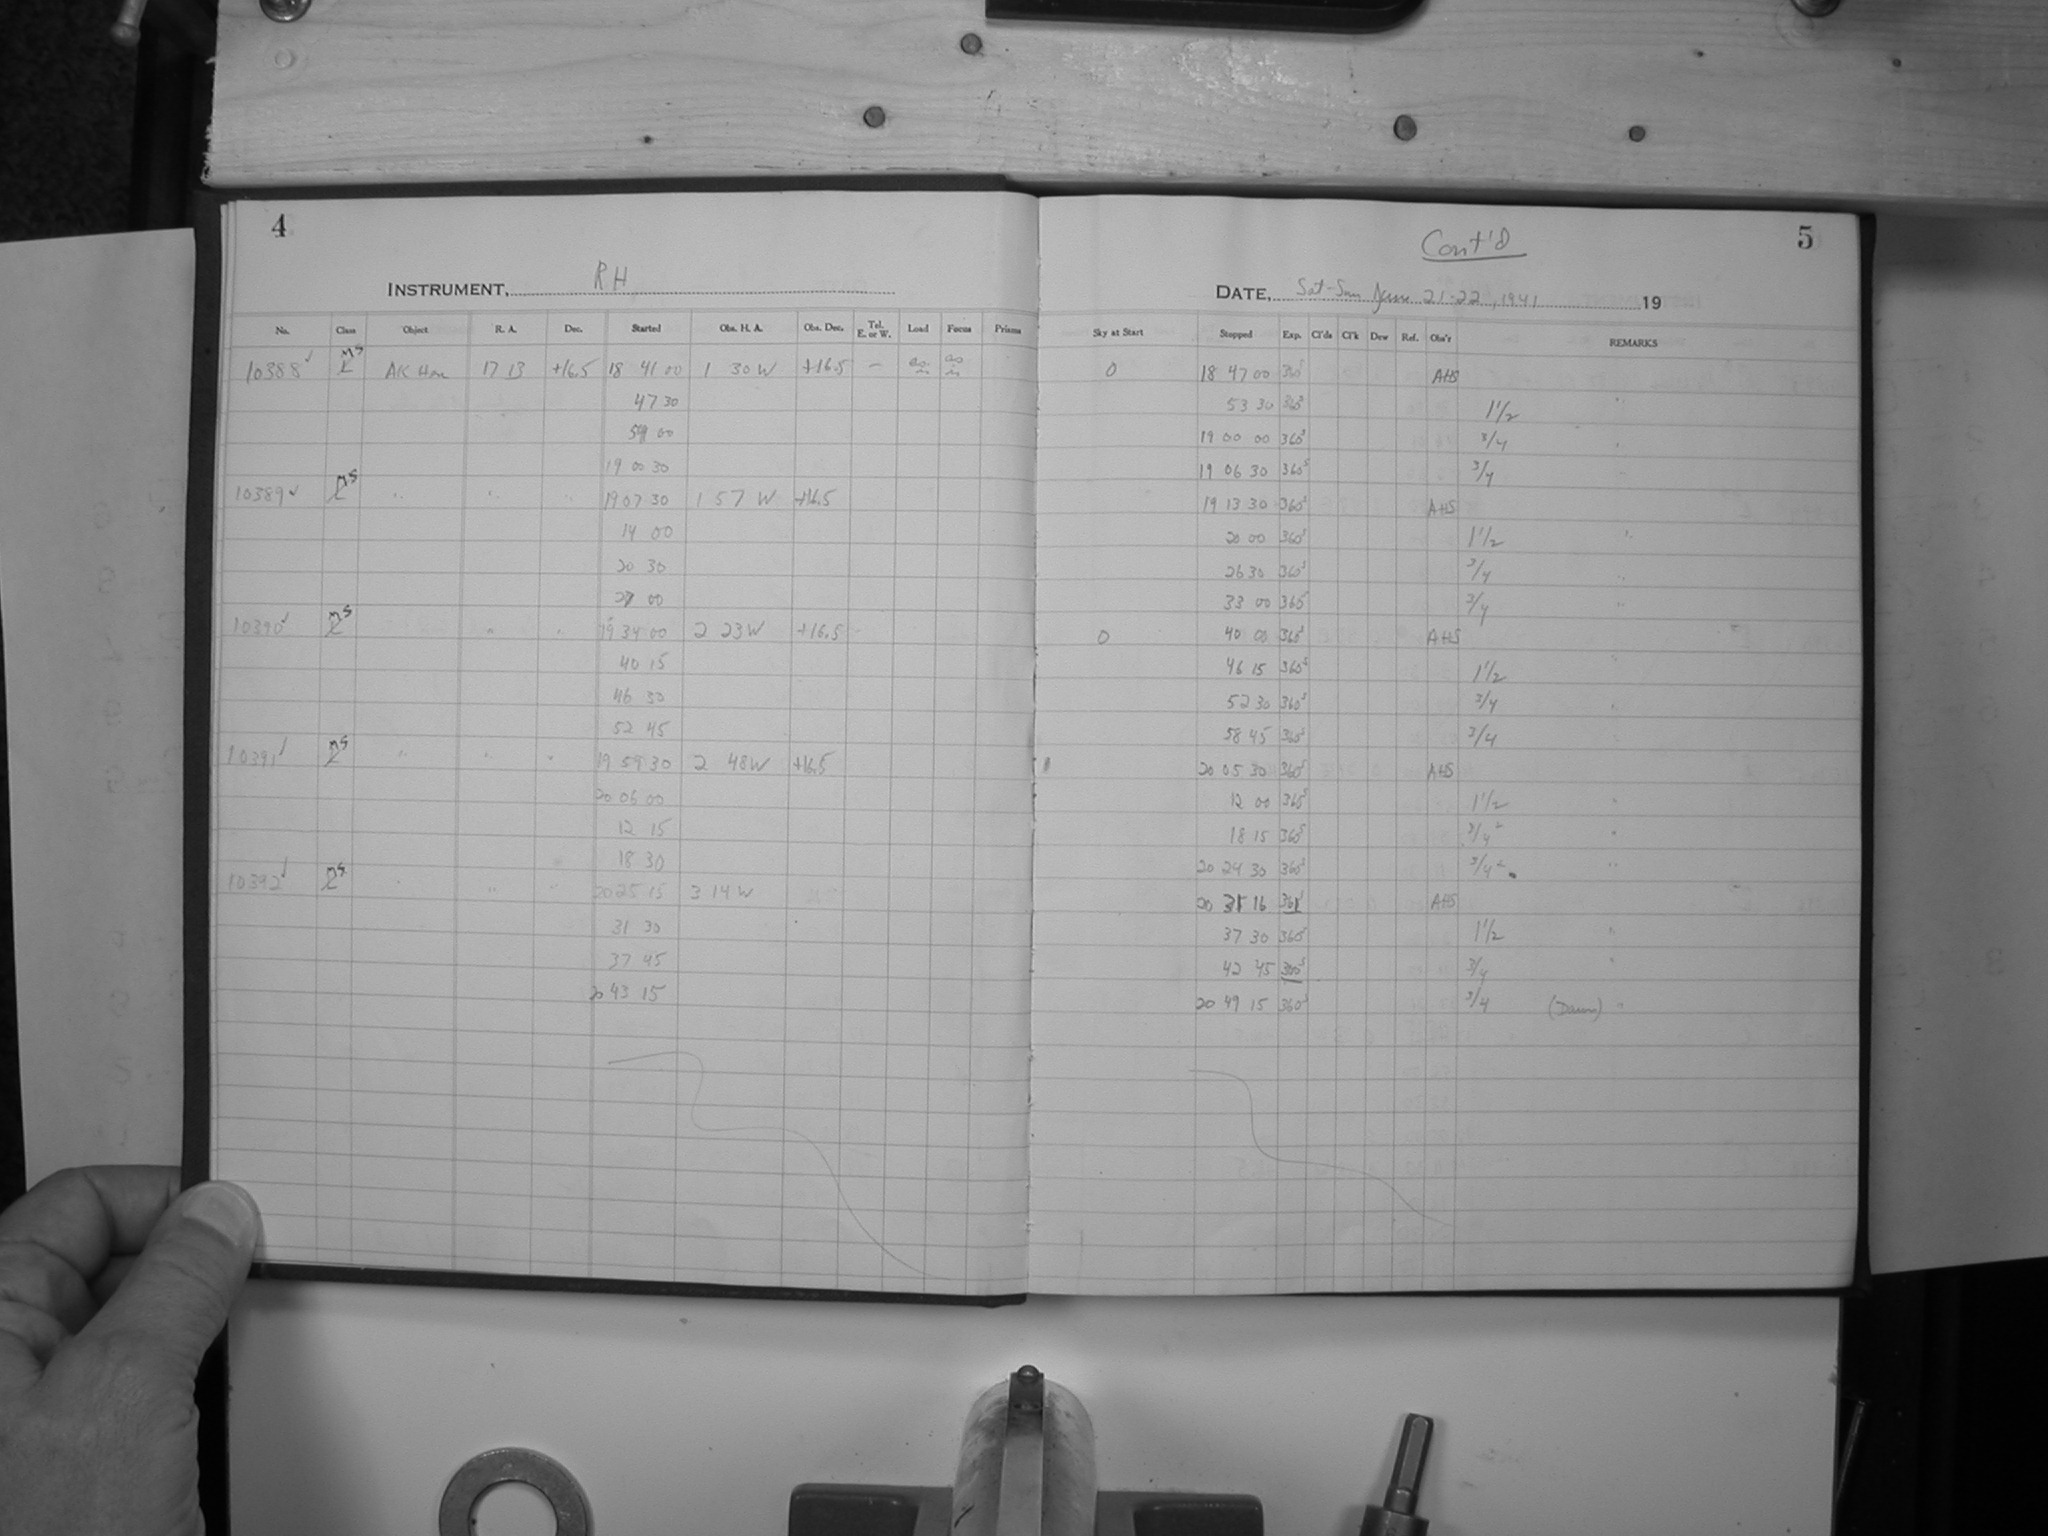 4
INSTRUMENT, RH
No. Class Object R. A. Dec. Started Obs. H. A. Obs. Dec. Tel. E. or W. Load Focus Prisms
10388 MS AK Her 17 13 +16.5 18 41 00 1 30 W +16.5 —
47 30
00
19 00 30
10389 MS " " " 19 07 30 1 57 W +16.5
14 00
20 30
27 00
10390 MS " " 19 34 00 2 23 W +16.5
40 15
46 30
52 45
10391 MS " " " 19 59 30 2 48 W +16.5
20 06 00
12 15
18 30
10392 MS " " " 20 25 15 3 14 W
31 30
37 45
20 43 15
Cont'd
5
DATE, Sat-Sun June 21-22, 1941 19
Sky at Start Stopped Exp. Cl'ds Cl'k Dew Ref. Obs'r REMARKS
0 18 47 00 360s AHS
53 30 360s 1 1/2 "
19 00 00 360s 3/4 "
19 06 30 360s 3/4 "
19 13 30 360s AHS
20 00 360s 1 1/2 "
26 30 360s 3/4 "
33 00 360 3/4 "
0 40 00 360s AHS
46 15 360s 1 1/2 "
52 30 360s 3/4 "
58 45 360s 3/4 "
20 05 30 360s AHS
12 00 360s 1 1/2 "
18 15 360s 3/4 "
20 24 30 360s 3/4 "
20 31 16 361s AHS
37 30 360s 1 1/2 "
42 45 300s 3/4 "
20 49 15 360s 3/4 (Dawn) "